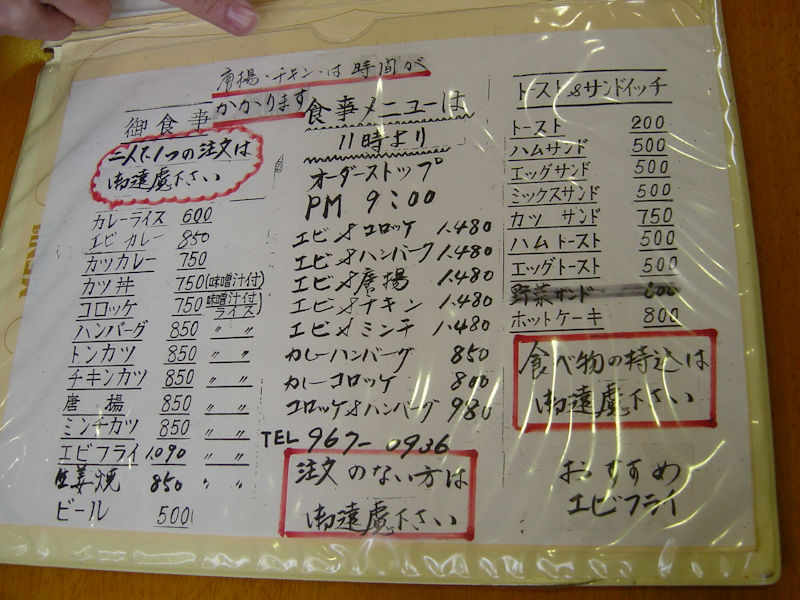 唐揚・チキン・は時間が
かかります
御食事
二人で1つの注文は
御遠慮下さい
カレーライス 600
エビカレー 850
カツカレー 750
カツ丼 750(味噌汁付)
コロッケ 750 味噌汁付 ライス
ハンバーグ 850 〃 〃
トンカツ 850 〃 〃
チキンカツ 850 〃 〃
唐揚 850 〃 〃
ミンチカツ 850 〃 〃
エビフライ 1.090 〃 〃
生姜焼 850 〃 〃
ビール 500
食事メニューは
11時より
オーダーストップ
PM 9:00
エビ&コロッケ 1.480
エビ&ハンバーグ 1.480
エビ&唐揚 1.480
エビ&チキン 1.480
エビ&ミンチ 1.480
カレーハンバーグ 850
カレーコロッケ 800
コロッケ&ハンバーグ 980
TEL 967-0936
注文のない方は
御遠慮下さい
トースト&サンドイッチ
トースト 200
ハムサンド 500
エッグサンド 500
ミックスサンド 500
カツサンド 750
ハムトースト 500
エッグトースト 500
野菜サンド 600
ホットケーキ 800
食べ物の持込は
御遠慮下さい
おすすめ
エビフライ
MENU